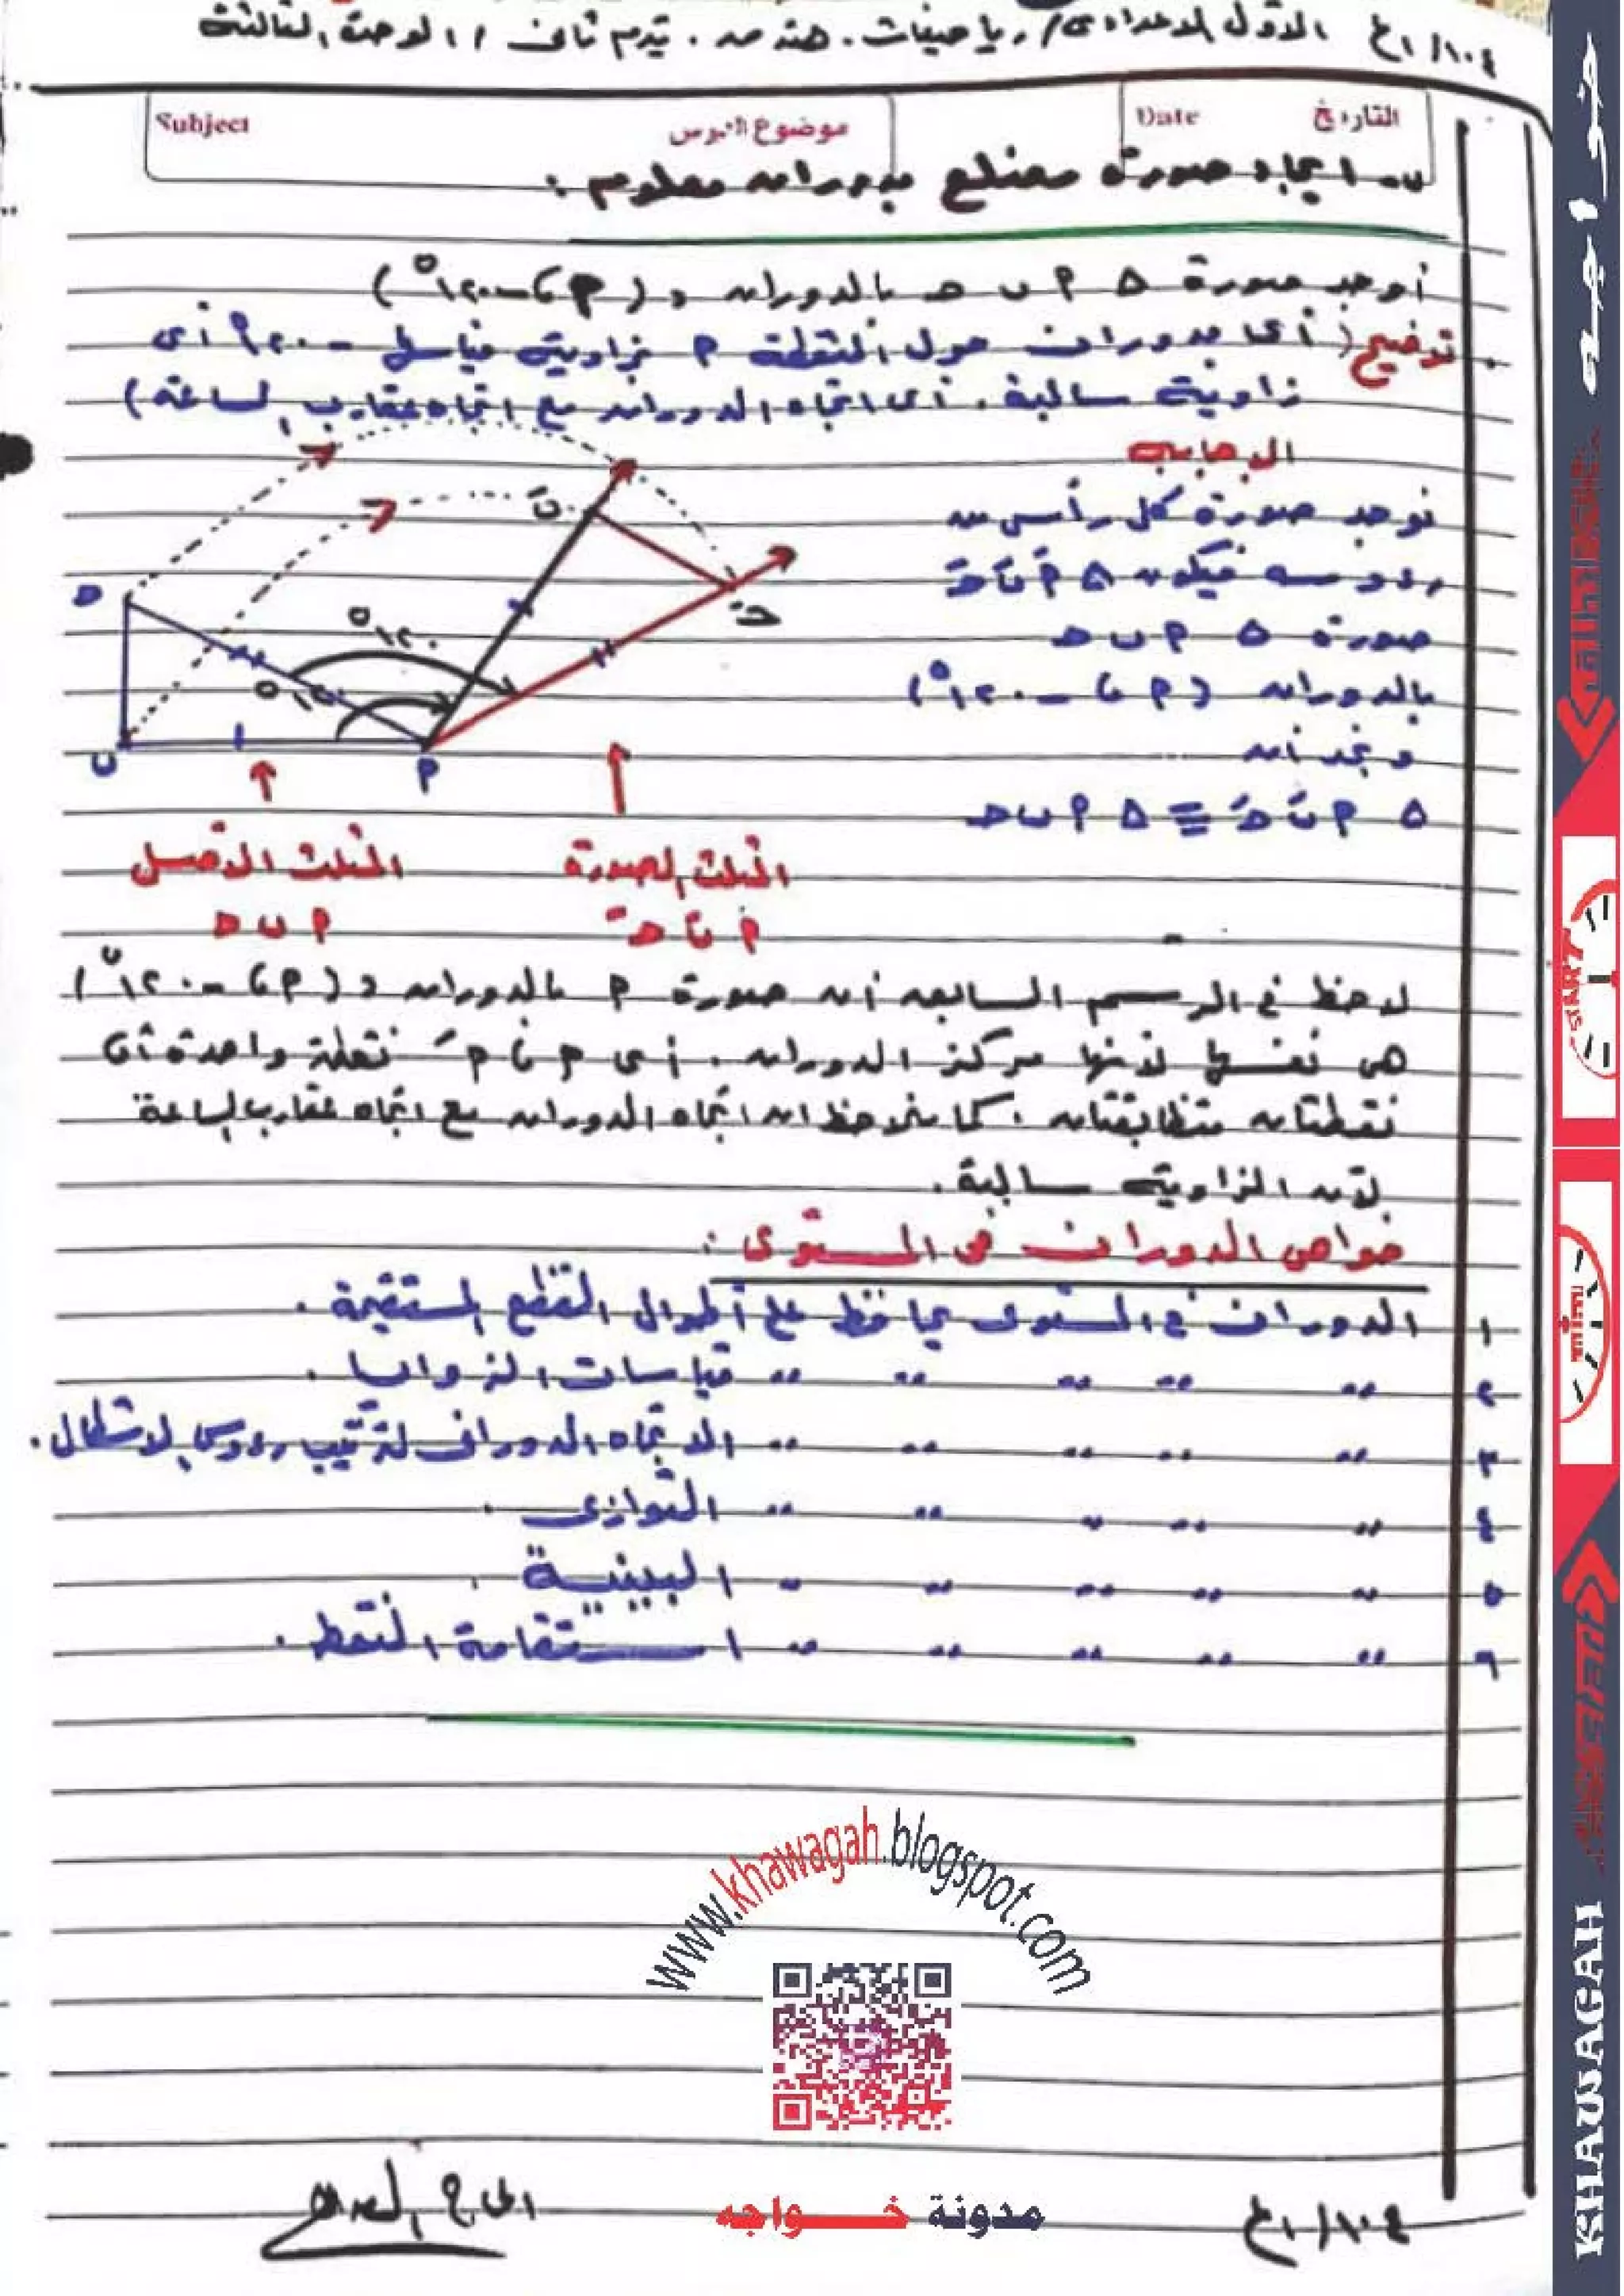 ١٠٤/١ع الأول الإعدادى / رياضيات . هندسة . تيرم ثانى // الوحدة الثالثة
Subject موضوع الدرس
Date التاريخ
ب- ايجاد صورة مضلع بدوران معلوم :
أوجد صورة △ أ ب ح بالدوران د ( أ ، -١٢٠°)
توضيح ( أى بدوران حول النقطة أ بزاوية قياسها -١٢٠° أى
زاوية سالبة . أى اتجاه الدوران مع اتجاه عقارب الساعة )
الإجابة
نوجد صورة كل رأس من
رءوسه فيكون △ أ بَ حَ
صورة △ أ ب ح
بالدوران ( أ ، -١٢٠°)
ونجد أن
△ أ بَ حَ ≡ △ أ ب ح
ح
ب
أ
بَ
حَ
١٢٠°
١٢٠°
المثلث الأصل
أ ب ح
المثلث الصورة
أ بَ حَ
لاحظ فى الرسم السابق أن صورة أ بالدوران د ( أ ، -١٢٠°)
هى نفسها لأنها مركز الدوران . أى أ ، أَ نقطة واحدة أى
نقطتان متطابقتان . كما نلاحظ ان اتجاه الدوران مع اتجاه عقارب الساعة
لأن الزاوية سالبة .
خواص الدوران فى المستوى :
١ الدوران فى المستوى يحافظ على أطوال القطع المستقيمة .
٢ " " " " " قياسات الزوايا .
٣ " " " " " الاتجاه الدورانى لترتيب رءوس الاشكال .
٤ " " " " " التوازى .
٥ " " " " " البينية .
٦ " " " " " استقامة النقط .
www.khawagah.blogspot.com
مدونة خـــواجه
١٠٤/١ع
خواجه
KHAWAGAH